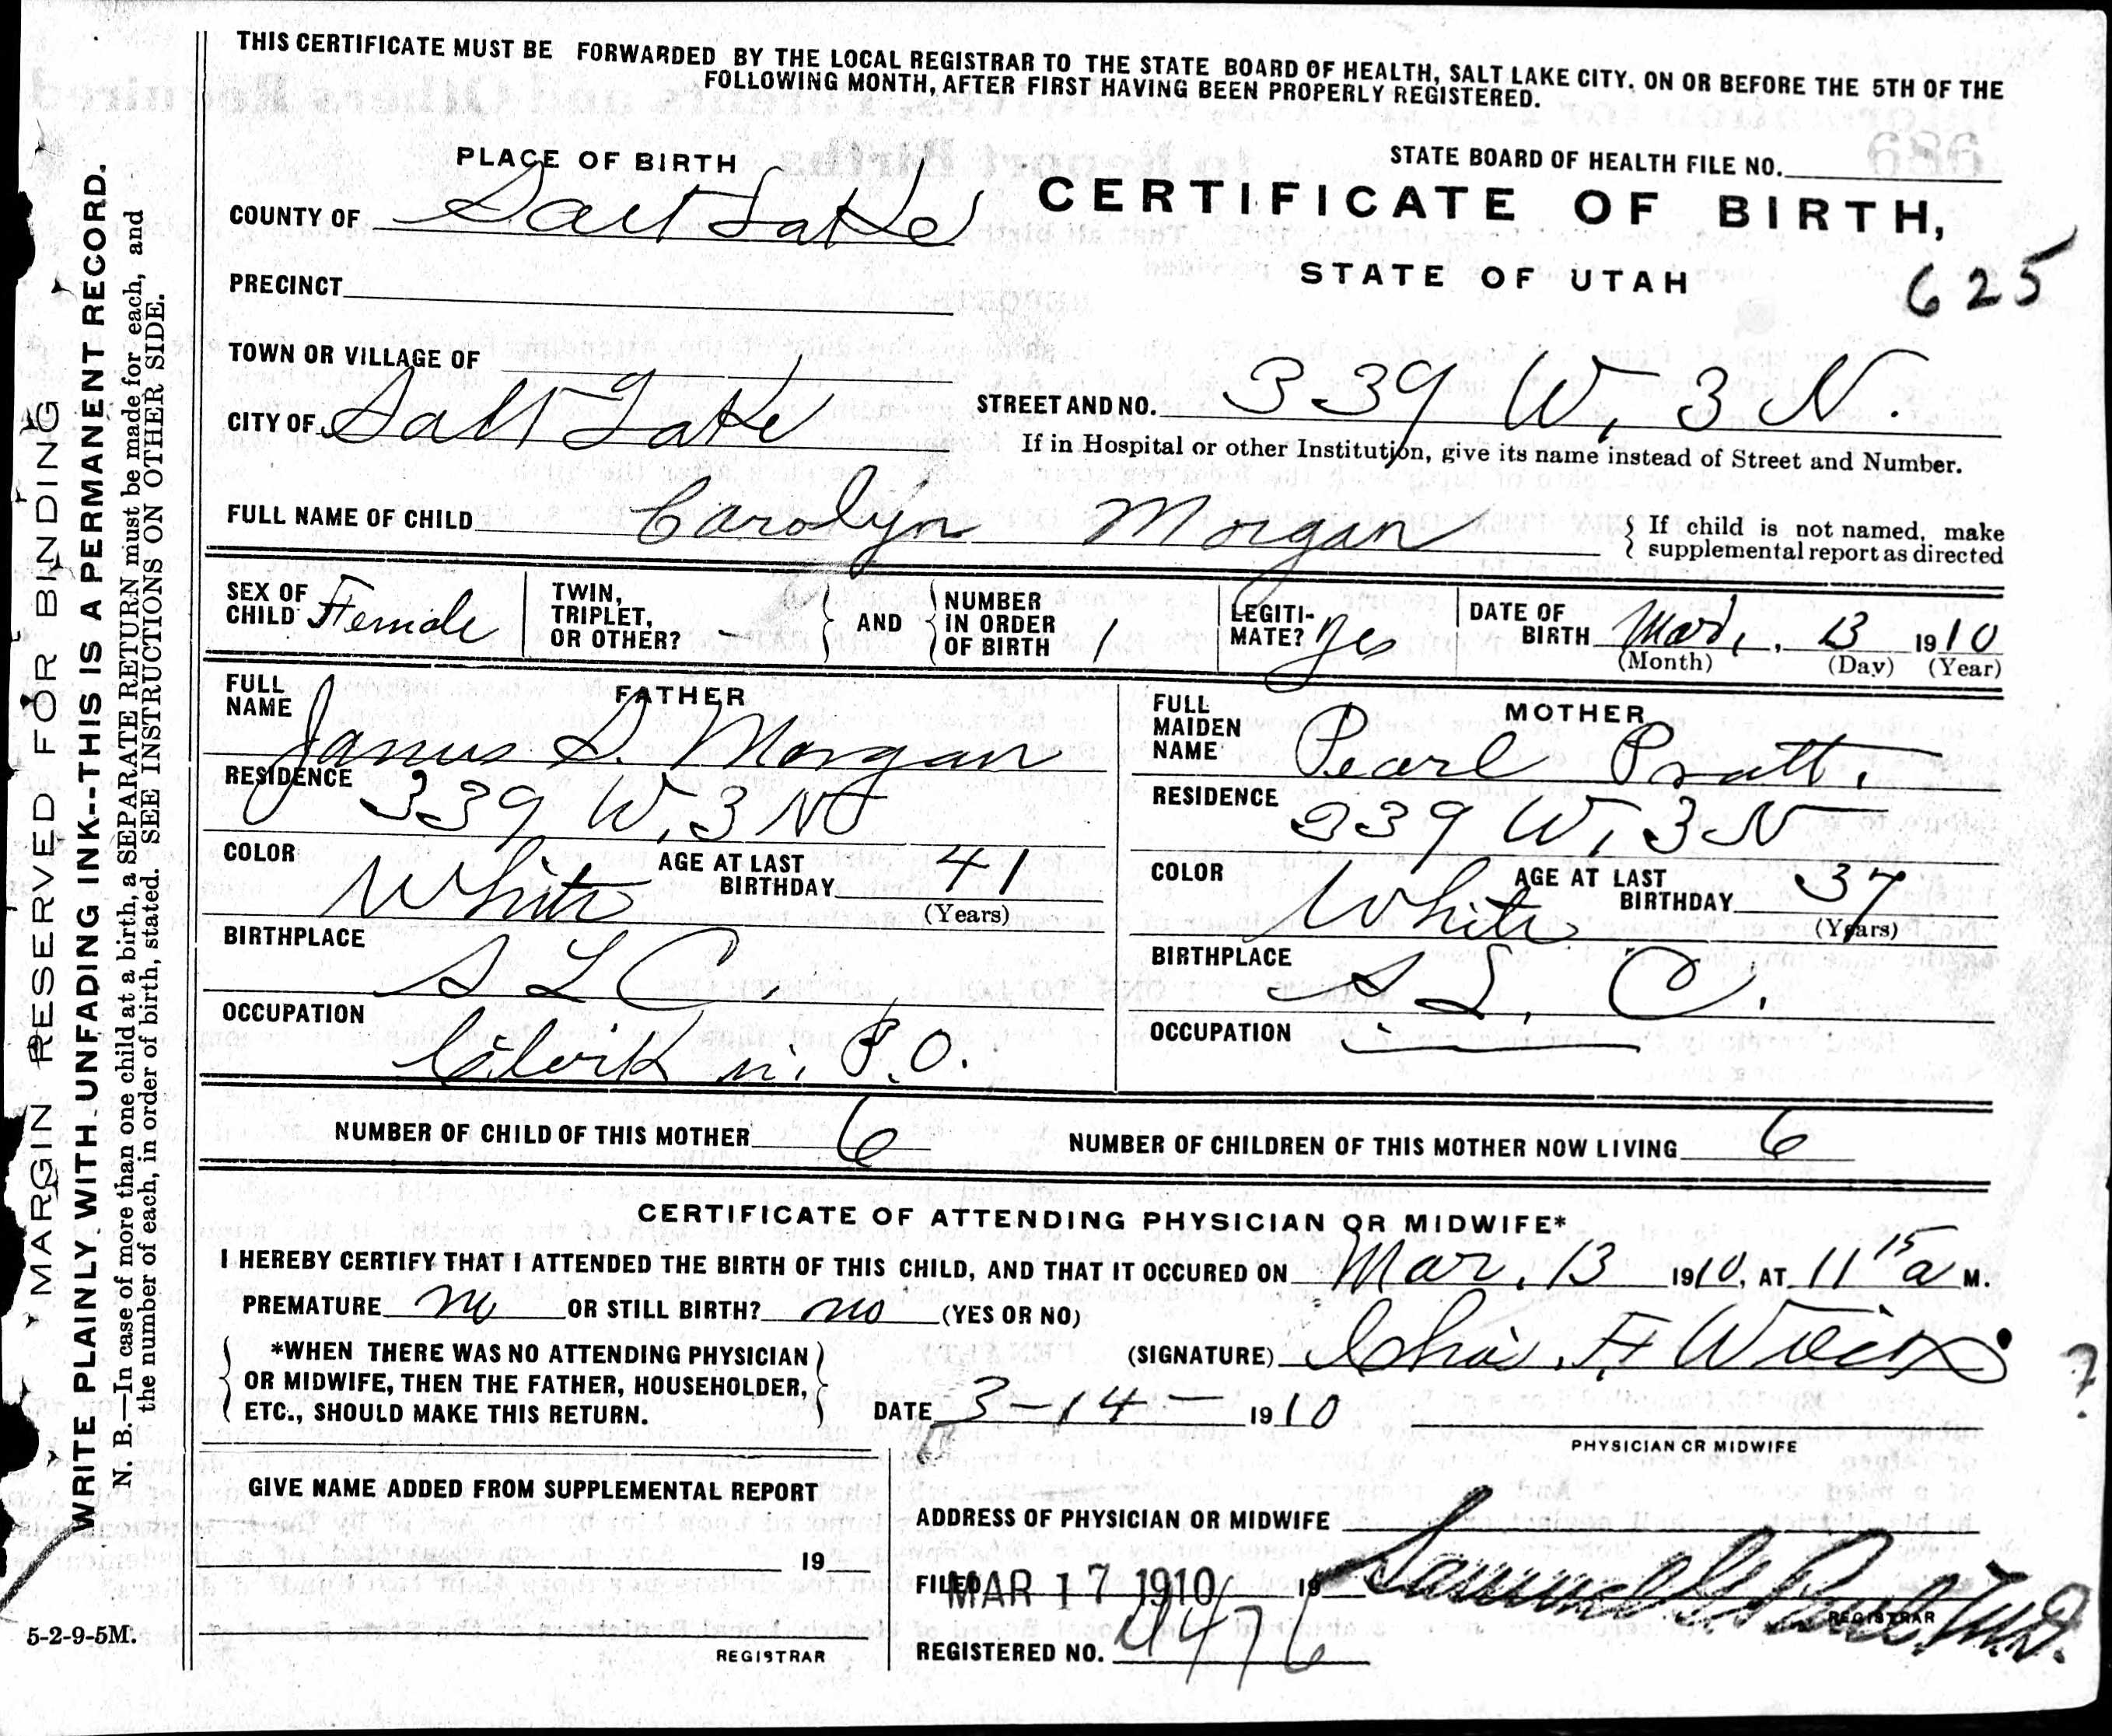 THIS CERTIFICATE MUST BE FORWARDED BY THE LOCAL REGISTRAR TO THE STATE BOARD OF HEALTH, SALT LAKE CITY, ON OR BEFORE THE 5TH OF THE
FOLLOWING MONTH, AFTER FIRST HAVING BEEN PROPERLY REGISTERED.
PLACE OF BIRTH
STATE BOARD OF HEALTH FILE NO.
COUNTY OF Salt Lake
CERTIFICATE OF BIRTH,
PRECINCT
STATE OF UTAH
625
TOWN OR VILLAGE OF
CITY OF Salt Lake
STREET AND NO. 339 W. 3 N.
If in Hospital or other Institution, give its name instead of Street and Number.
FULL NAME OF CHILD Carolyn Morgan
{ If child is not named, make
supplemental report as directed
SEX OF CHILD Female
TWIN, TRIPLET, OR OTHER? -
} AND {
NUMBER IN ORDER OF BIRTH 1
LEGITI-MATE? yes
DATE OF BIRTH Mar, 13 1910
(Month) (Day) (Year)
FATHER
FULL NAME James D. Morgan
RESIDENCE 339 W. 3 No
COLOR White
AGE AT LAST BIRTHDAY 41
(Years)
BIRTHPLACE S L C.
OCCUPATION Clerk in P.O.
MOTHER
FULL MAIDEN NAME Pearl Pratt.
RESIDENCE 339 W. 3 N
COLOR White
AGE AT LAST BIRTHDAY 37
(Years)
BIRTHPLACE S. L. C.
OCCUPATION
NUMBER OF CHILD OF THIS MOTHER 6
NUMBER OF CHILDREN OF THIS MOTHER NOW LIVING 6
CERTIFICATE OF ATTENDING PHYSICIAN OR MIDWIFE*
I HEREBY CERTIFY THAT I ATTENDED THE BIRTH OF THIS CHILD, AND THAT IT OCCURED ON Mar. 13 1910, AT 11 15 a M.
PREMATURE no OR STILL BIRTH? no (YES OR NO)
*WHEN THERE WAS NO ATTENDING PHYSICIAN
OR MIDWIFE, THEN THE FATHER, HOUSEHOLDER,
ETC., SHOULD MAKE THIS RETURN.
(SIGNATURE) Chas. F. Wilcox
?
DATE 3-14- 1910
PHYSICIAN OR MIDWIFE
GIVE NAME ADDED FROM SUPPLEMENTAL REPORT
19
REGISTRAR
ADDRESS OF PHYSICIAN OR MIDWIFE
FILED MAR 17 1910 19
Samuel G. Paul M.D.
REGISTRAR
REGISTERED NO. 476
MARGIN RESERVED FOR BINDING
WRITE PLAINLY WITH UNFADING INK--THIS IS A PERMANENT RECORD.
N. B.—In case of more than one child at a birth, a SEPARATE RETURN must be made for each, and
the number of each, in order of birth, stated. SEE INSTRUCTIONS ON OTHER SIDE.
5-2-9-5M.